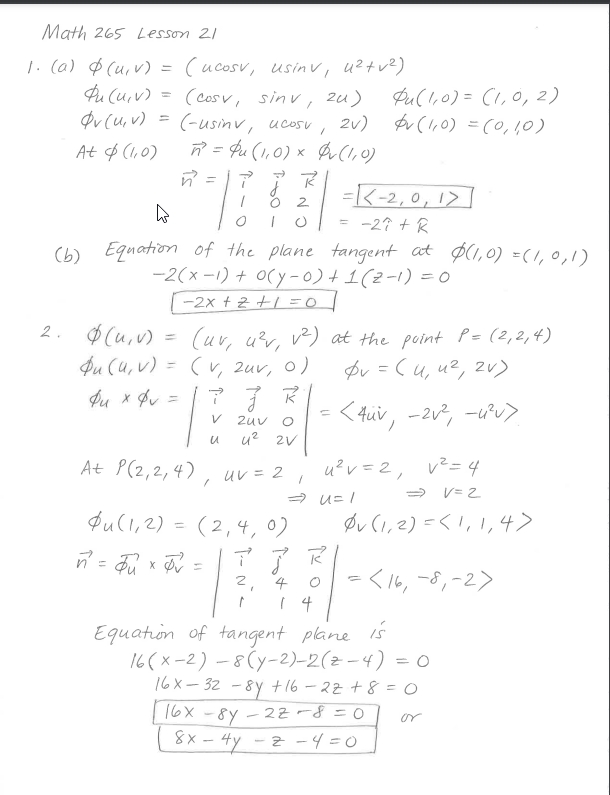 Math 265 Lesson 21
1. (a) ϕ(u,v) = (ucosv, usinv, u²+v²)
ϕu(u,v) = (cosv, sinv, 2u) ϕu(1,0) = (1, 0, 2)
ϕv(u,v) = (-usinv, ucosv, 2v) ϕv(1,0) = (0, 1, 0)
At ϕ(1,0) n⃗ = ϕu(1,0) × ϕv(1,0)
n⃗ = | i⃗ j⃗ k⃗ |
| 1 0 2 | = <-2, 0, 1>
| 0 1 0 | = -2î + k̂
(b) Equation of the plane tangent at ϕ(1,0) = (1, 0, 1)
-2(x-1) + 0(y-0) + 1(z-1) = 0
-2x + z + 1 = 0
2. ϕ(u,v) = (uv, u²v, v²) at the point P = (2,2,4)
ϕu(u,v) = (v, 2uv, 0) ϕv = (u, u², 2v>
ϕu × ϕv = | i⃗ j⃗ k⃗ |
| v 2uv 0 | = <4uv, -2v², -u²v>
| u u² 2v |
At P(2,2,4), uv = 2, u²v = 2, v² = 4
⇒ u = 1 ⇒ v = 2
ϕu(1,2) = (2, 4, 0) ϕv(1,2) = <1, 1, 4>
n⃗ = ϕ⃗u × ϕ⃗v = | i⃗ j⃗ k⃗ |
| 2, 4 0 | = <16, -8, -2>
| 1 1 4 |
Equation of tangent plane is
16(x-2) - 8(y-2) - 2(z-4) = 0
16x - 32 - 8y + 16 - 2z + 8 = 0
16x - 8y - 2z - 8 = 0 or
8x - 4y - z - 4 = 0